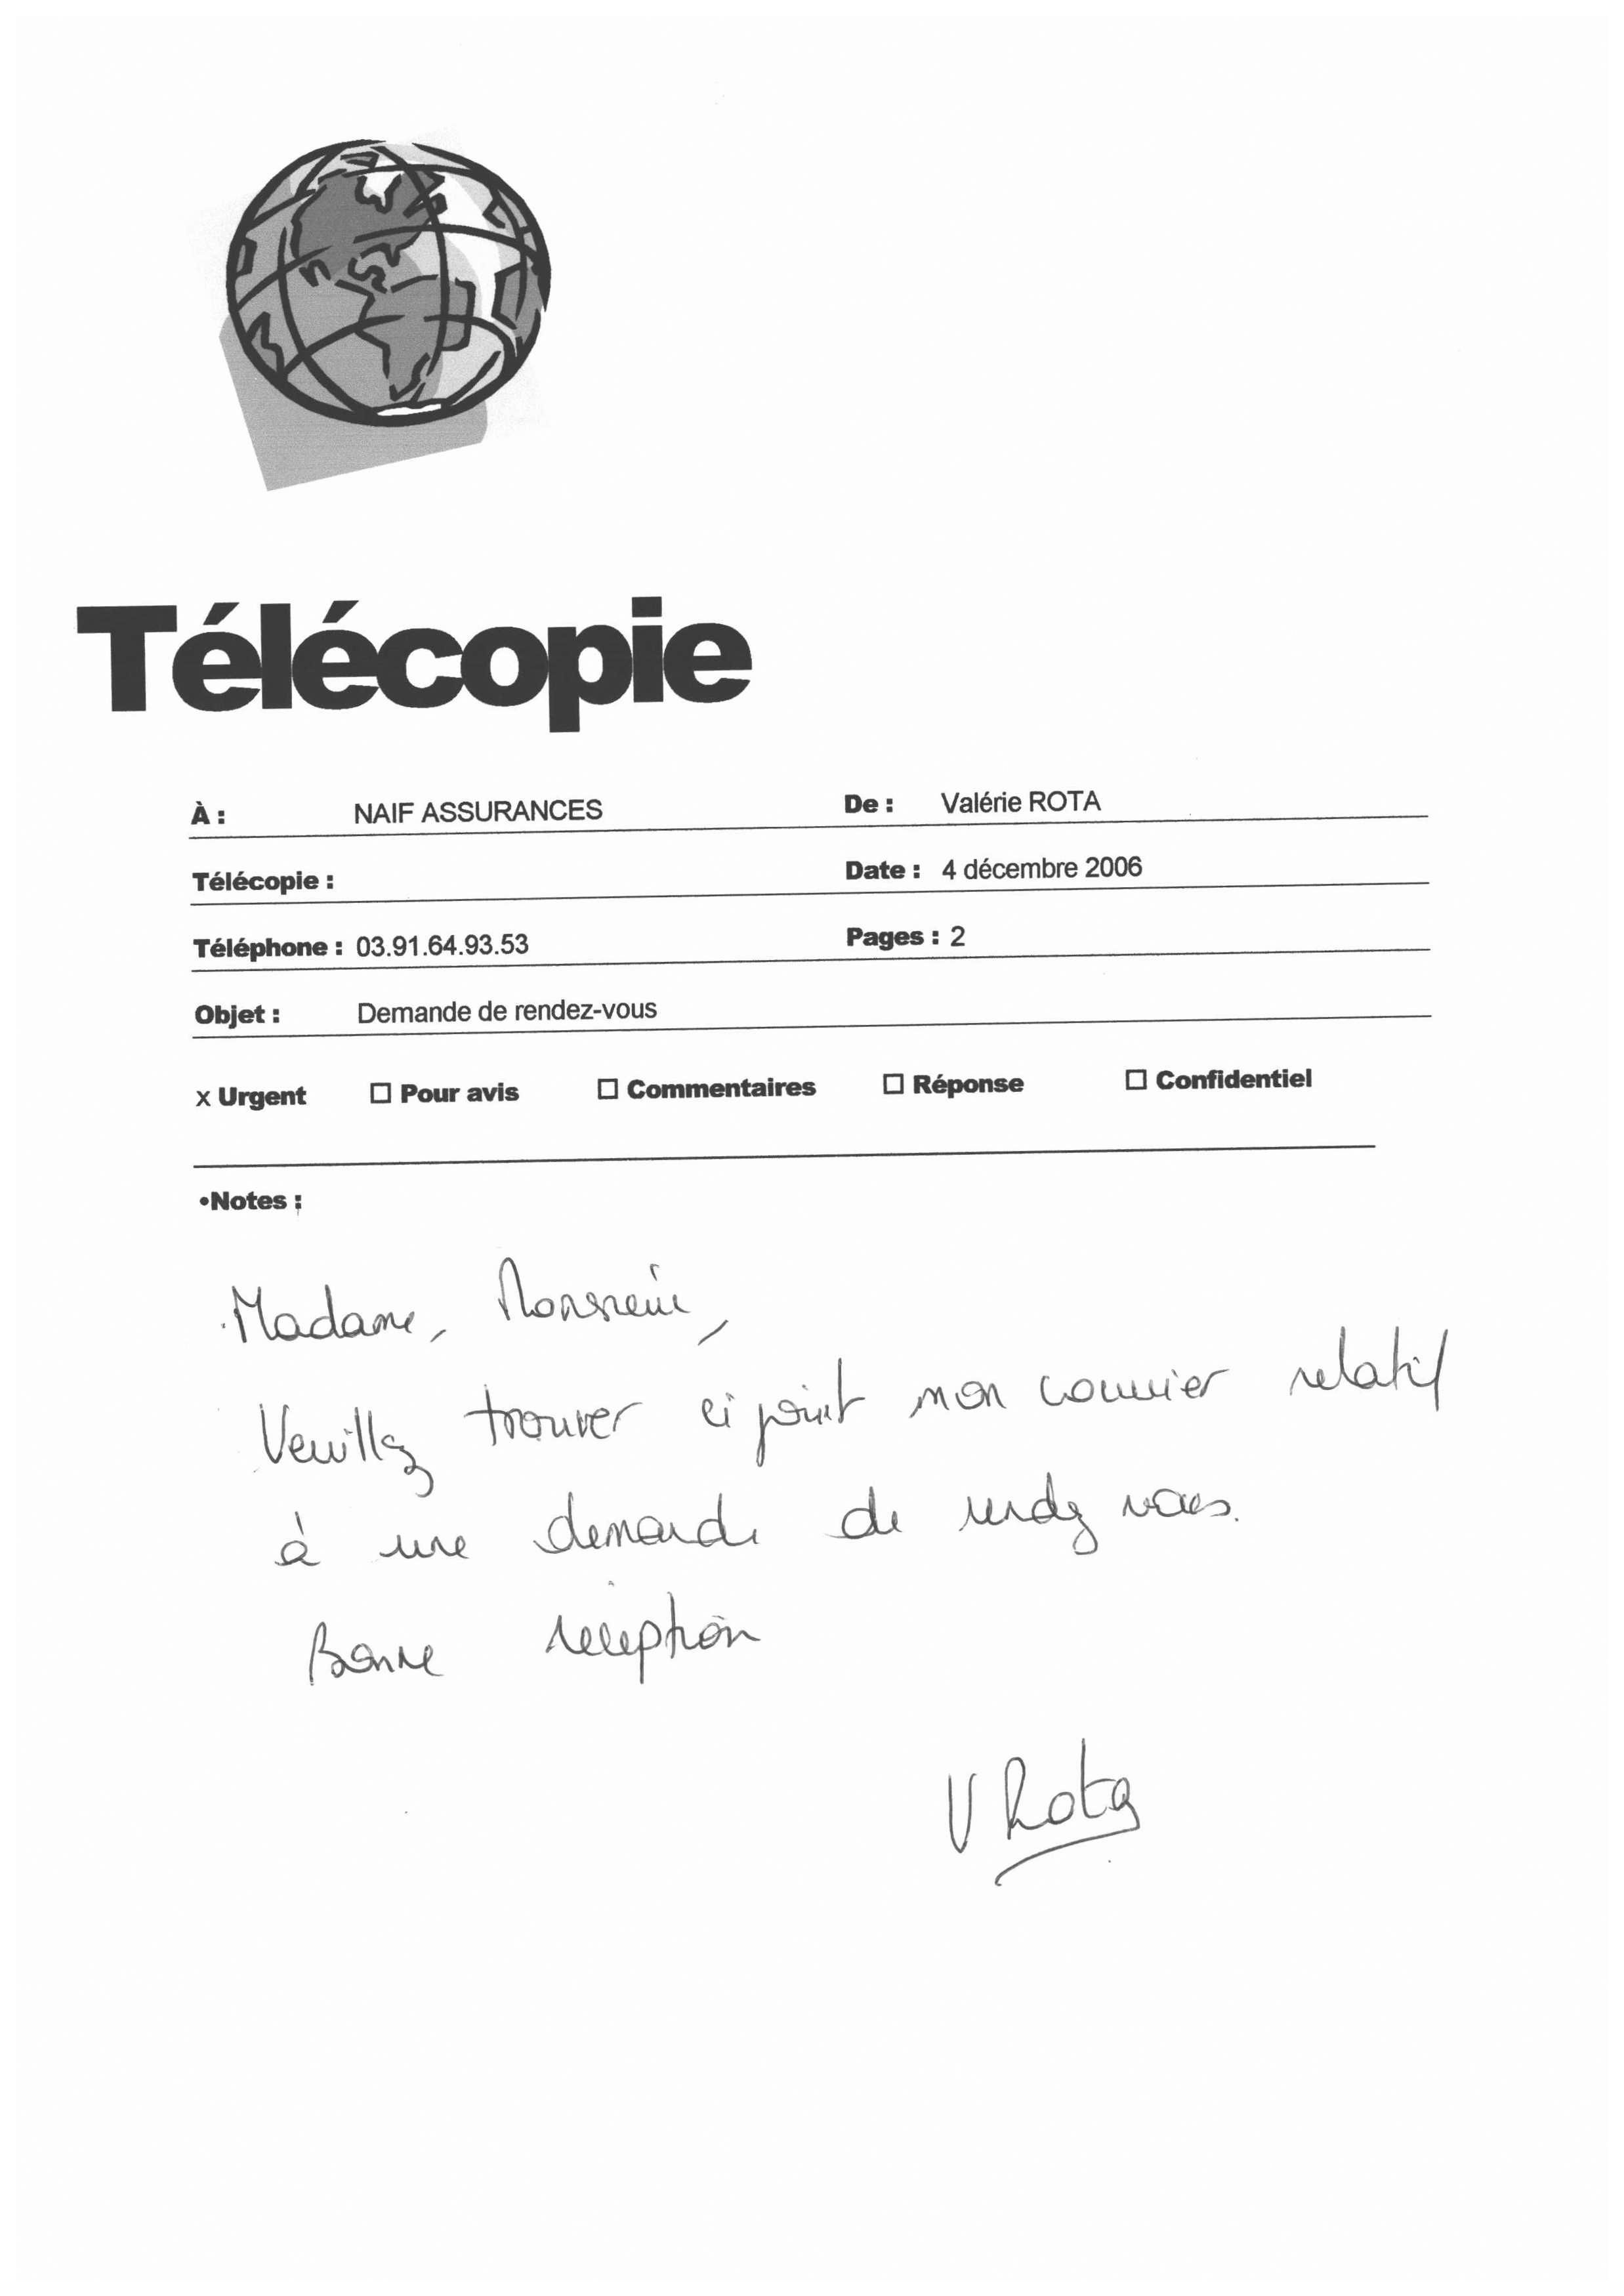 Télécopie
À : NAIF ASSURANCES De : Valérie ROTA
Télécopie : Date : 4 décembre 2006
Téléphone : 03.91.64.93.53 Pages : 2
Objet : Demande de rendez-vous
x Urgent ☐ Pour avis ☐ Commentaires ☐ Réponse ☐ Confidentiel
•Notes :
Madame, Monsieur,
Veuillez trouver ci joint mon courrier relatif
à une demande de rendez vous.
Bonne réception
V Rota